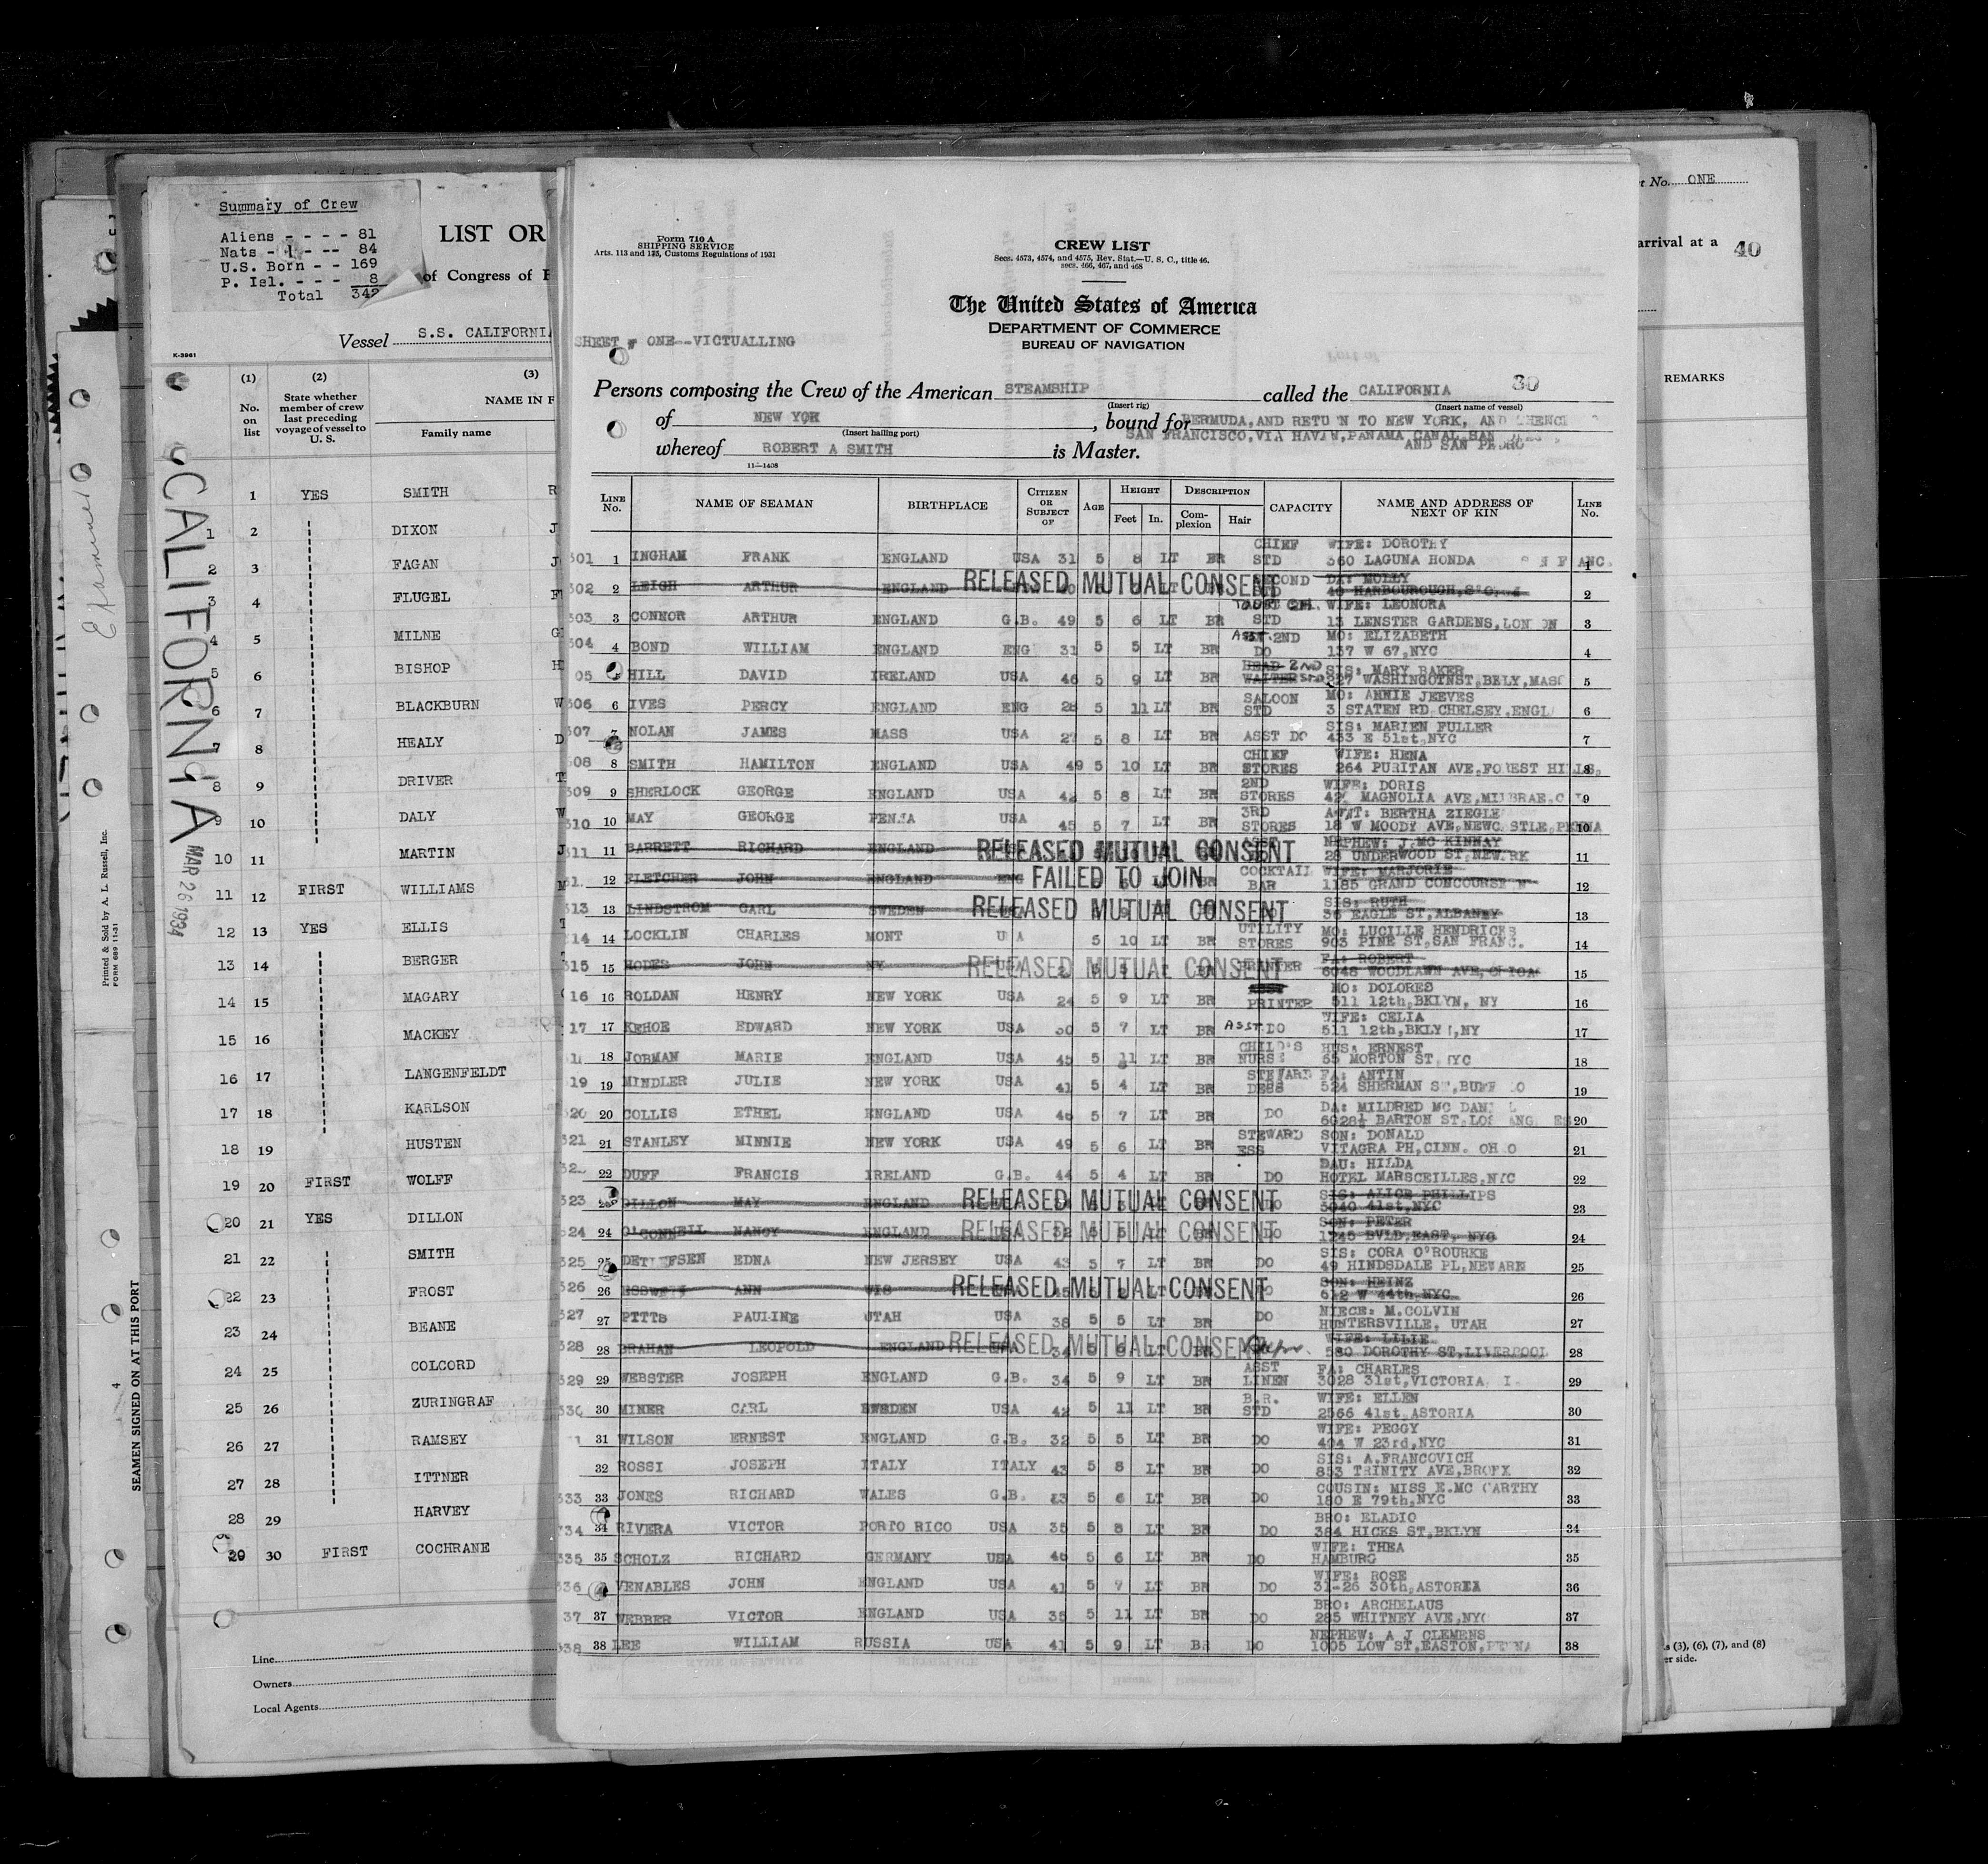 Summary of Crew
Aliens - - - - 81
Nats - - - - 84
U.S. Born - - 169
P. Isl. - - - 8
Total 342
LIST OR
of Congress of
Vessel S.S. CALIFORNIA
K-3961
(1) (2) (3)
No. on list
State whether member of crew last preceding voyage of vessel to U. S.
NAME IN F
Family name
CALIFORNIA
MAR 26 1934
1 YES SMITH R
1 2 DIXON J
2 3 FAGAN J
3 4 FLUGEL F
4 5 MILNE G
5 6 BISHOP H
6 7 BLACKBURN W
7 8 HEALY D
8 9 DRIVER T
9 10 DALY W
10 11 MARTIN J
11 12 FIRST WILLIAMS M
12 13 YES ELLIS T
13 14 BERGER
14 15 MAGARY
15 16 MACKEY
16 17 LANGENFELDT
17 18 KARLSON
18 19 HUSTEN
19 20 FIRST WOLFF
20 21 YES DILLON
21 22 SMITH
22 23 FROST
23 24 BEANE
24 25 COLCORD
25 26 ZURINGRAF
26 27 RAMSEY
27 28 ITTNER
28 29 HARVEY
29 30 FIRST COCHRANE
Line
Owners
Local Agents
Examined
Printed & Sold by A. L. Russell, Inc.
FORM 689 11-31
SEAMEN SIGNED ON AT THIS PORT
4
Form 710 A
SHIPPING SERVICE
Arts. 113 and 125, Customs Regulations of 1931
CREW LIST
Secs. 4573, 4574, and 4575, Rev. Stat.—U. S. C., title 46.
secs. 466, 467, and 468
The United States of America
DEPARTMENT OF COMMERCE
BUREAU OF NAVIGATION
SHEET # ONE--VICTUALLING
30
Persons composing the Crew of the American STEAMSHIP called the CALIFORNIA
(Insert rig) (Insert name of vessel)
of NEW YOK, bound for BERMUDA,AND RETU N TO NEW YORK, AND HENC
(Insert hailing port) SAN FRANCISCO,VIA HAVAN,PANAMA CANAL
AND SAN PEDRO
whereof ROBERT A SMITH is Master.
11—1408
LINE No. NAME OF SEAMAN BIRTHPLACE CITIZEN OR SUBJECT OF AGE HEIGHT Feet In. DESCRIPTION Complexion Hair CAPACITY NAME AND ADDRESS OF NEXT OF KIN LINE No.
301 1 INGHAM FRANK ENGLAND USA 31 5 8 LT BR CHIEF STD WIFE: DOROTHY 360 LAGUNA HONDA 1
302 2 LEIGH ARTHUR ENGLAND RELEASED MUTUAL CONSENT DA: MOLLY 2
303 3 CONNOR ARTHUR ENGLAND G.B. 49 5 6 LT BR STD WIFE: LEONORA 13 LENSTER GARDENS,LON ON 3
304 4 BOND WILLIAM ENGLAND ENG 31 5 5 LT BR ASST 2ND DO MO: ELIZABETH 137 W 67,NYC 4
05 5 HILL DAVID IRELAND USA 46 5 9 LT BR HEAD 2ND WAITER STD SIS: MARY BAKER 327 WASHINGOTNST,BELY,MASS 5
306 6 IVES PERCY ENGLAND ENG 28 5 11 LT BR SALOON STD MO: ANNIE JEEVES 3 STATEN RD CHELSEY,ENGL 6
307 7 NOLAN JAMES MASS USA 27 5 8 LT BR ASST DO SIS: MARIEN FULLER 433 E 51st,NYC 7
308 8 SMITH HAMILTON ENGLAND USA 49 5 10 LT BR CHIEF STORES WIFE: HENA 264 PURITAN AVE,FOREST HILLS, 8
309 9 SHERLOCK GEORGE ENGLAND USA 42 5 8 LT BR 2ND STORES WIFE: DORIS MAGNOLIA AVE, 9
310 10 MAY GEORGE USA 45 5 7 LT BR 3RD STORES BERTHA ZIEGLE 18 W MOODY AVE,NEWC STLE, 10
311 11 BARRETT RICHARD ENGLAND RELEASED MUTUAL CONSENT NEPHEW: J.MC KINNAY 28 UNDERWOOD ST,NEW RK 11
12 FLETCHER JOHN ENGLAND ENG FAILED TO JOIN COCKTAIL BAR WIFE: MARJORIE 1185 GRAND CONCOURSE 12
313 13 LINDSTROM CARL SWEDEN RELEASED MUTUAL CONSENT SIS: RUTH 36 EAGLE ST,ALBANY 13
14 14 LOCKLIN CHARLES MONT U A 5 10 LT BR UTILITY STORES MO: LUCILLE HENDRICKS 903 PINE ST,SAN FRANC. 14
315 15 HODES JOHN NY RELEASED MUTUAL CONSENT PRINTER FA: ROBERT 6048 WOODLAWN AVE, 15
16 16 ROLDAN HENRY NEW YORK USA 24 5 9 LT BR PRINTER MO: DOLORES 511 12th,BKLYN, NY 16
17 17 KEHOE EDWARD NEW YORK USA 30 5 7 LT BR ASST DO WIFE: CELIA 511 12th,BKLY ,NY 17
18 JOBMAN MARIE ENGLAND USA 45 5 LT BR CHILD'S NURSE HUS: ERNEST 65 MORTON ST, NYC 18
319 19 MINDLER JULIE NEW YORK USA 41 5 4 LT BR STEWARD DESS FA: ANTIN 524 SHERMAN ST,BUFF LO 19
320 20 COLLIS ETHEL ENGLAND USA 46 5 7 LT BR DO DA: MILDRED MC DAN 6028½ BARTON ST,LOS ANG ES 20
321 21 STANLEY MINNIE NEW YORK USA 49 5 6 LT BR STEWARD ESS SON: DONALD VITAGRA PH,CINN. OHIO 21
32 22 DUFF FRANCIS IRELAND G.B. 44 5 4 LT BR DO DAU: HILDA HOTEL MARSCEILLES,NYC 22
323 23 DILLON MAY ENGLAND RELEASED MUTUAL CONSENT DO SIS: ALICE PHILLIPS 3040 41st,NYC 23
324 24 O'CONNELL NANCY ENGLAND RELEASED MUTUAL CONSENT DO SON: PETER 1245 BVLD,EAST, NYC 24
325 25 DETLEFSEN EDNA NEW JERSEY USA 43 5 7 LT BR DO SIS: CORA O'ROURKE 49 HINDSDALE PL,NEWARK 25
326 26 ANN WIS RELEASED MUTUAL CONSENT DO SON: HEINZ 612 W 44th,NYC 26
327 27 PITTS PAULINE UTAH USA 38 5 5 LT BR DO NIECE: M.COLVIN HUNTERSVILLE, UTAH 27
328 28 BRAHAM LEOPOLD ENGLAND RELEASED MUTUAL CONSENT WIFE: LILIE 580 DOROTHY ST,LIVERPOOL 28
329 29 WEBSTER JOSEPH ENGLAND G.B. 34 5 9 LT BR ASST LINEN FA: CHARLES 3028 31st,VICTORIA 29
330 30 MINER CARL SWEDEN USA 42 5 11 LT BR B.R. STD WIFE: ELLEN 2566 41st,ASTORIA 30
31 WILSON ERNEST ENGLAND G.B. 32 5 5 LT BR DO WIFE: PEGGY 494 W 23rd,NYC 31
32 ROSSI JOSEPH ITALY ITALY 43 5 8 LT BR DO SIS: A.FRANCOVICH 853 TRINITY AVE,BRONX 32
333 33 JONES RICHARD WALES G.B. 5 6 LT BR DO COUSIN: MISS E.MC CARTHY 180 E 79th,NYC 33
334 34 RIVERA VICTOR PORTO RICO USA 35 5 8 LT BR DO BRO: ELADIO 384 HICKS ST,BKLYN 34
335 35 SCHOLZ RICHARD GERMANY USA 46 5 6 LT BR DO WIFE: THEA HAMBURG 35
336 VENABLES JOHN ENGLAND USA 41 5 7 LT BR DO WIFE: ROSE 31-26 30th,ASTORIA 36
37 37 WEBBER VICTOR ENGLAND USA 35 5 11 LT BR DO BRO: ARCHELAUS 285 WHITNEY AVE,NYC 37
338 38 LEE WILLIAM RUSSIA USA 41 5 9 LT BR DO NEPHEW: A J CLEMENS 1005 LOW ST,EASTON,PENNA 38
No. ONE
arrival at a 40
REMARKS
(3), (6), (7), and (8)
er side.